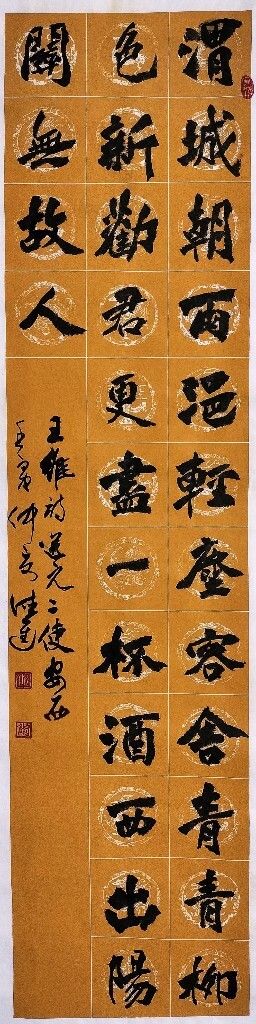 渭城朝雨浥輕塵客舍青青柳
色新勸君更盡一杯酒西出陽
關無故人
王維詩送元二使安西
仲夏